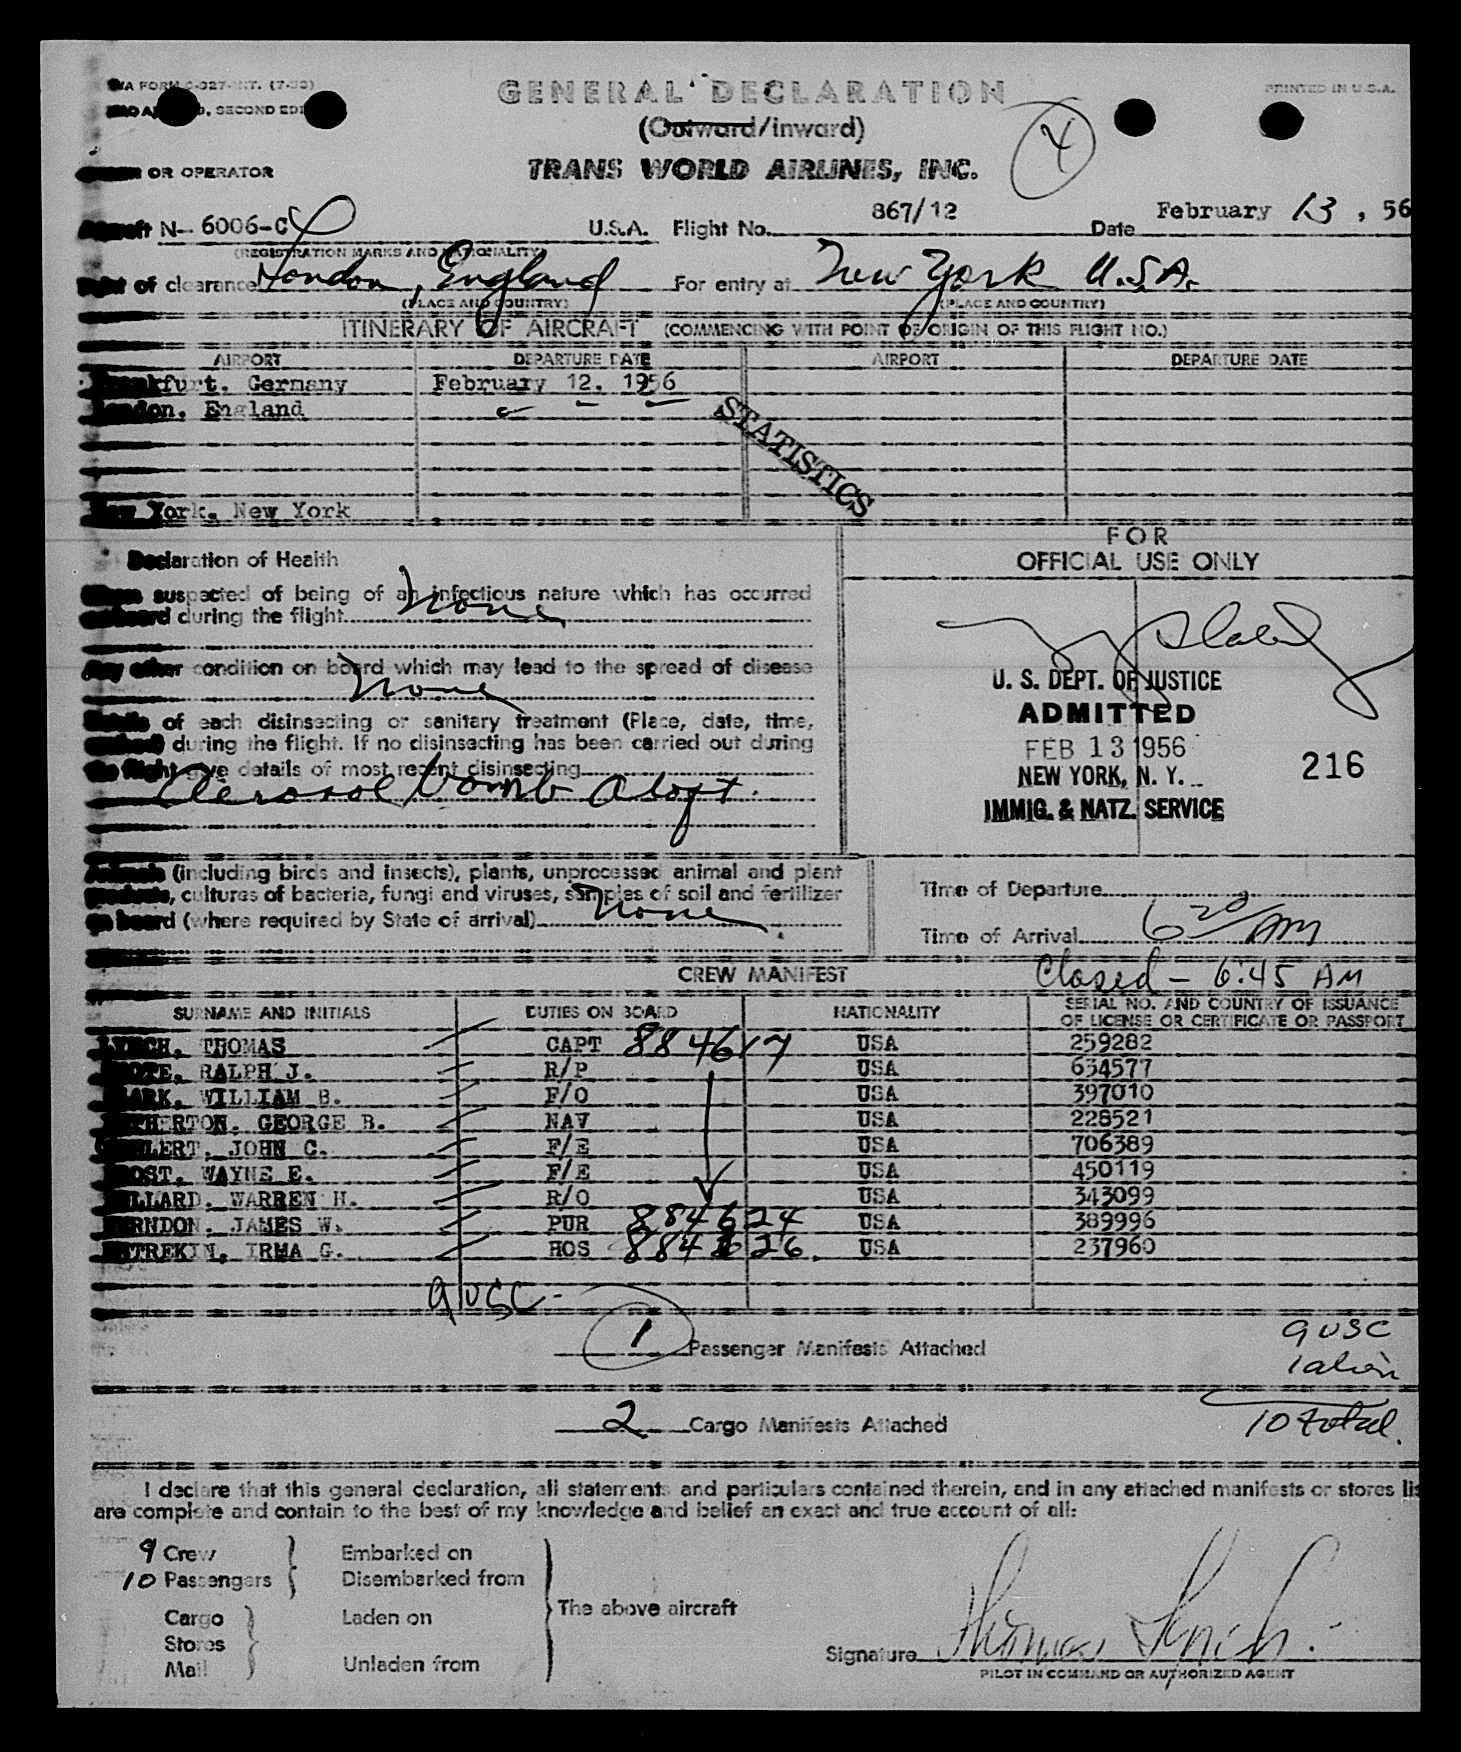 GENERAL DECLARATION
PRINTED IN U.S.A.
SECOND
(Outward/inward)
4
TRANS WORLD AIRLINES, INC.
OR OPERATOR
N- 6006-C U.S.A. Flight No. 867/12 Date February 13, 56
(REGISTRATION MARKS AND NATIONALITY)
of clearance London, England For entry at New York U.S.A.
(PLACE AND COUNTRY) (PLACE AND COUNTRY)
ITINERARY OF AIRCRAFT (COMMENCING WITH POINT OF ORIGIN OF THIS FLIGHT NO.)
AIRPORT DEPARTURE DATE AIRPORT DEPARTURE DATE
Frankfurt. Germany February 12. 1956
London. England
STATISTICS
New York. New York
FOR
OFFICIAL USE ONLY
Declaration of Health
suspected of being of an infectious nature which has occurred
during the flight None
Any other condition on board which may lead to the spread of disease
None
of each disinsecting or sanitary treatment (Place, date, time,
during the flight. If no disinsecting has been carried out during
the flight give details of most recent disinsecting
Aerosol bomb aloft.
U. S. DEPT. OF JUSTICE
ADMITTED
FEB 13 1956
NEW YORK, N. Y.
IMMIG. & NATZ. SERVICE
216
(including birds and insects), plants, unprocessed animal and plant
products, cultures of bacteria, fungi and viruses, samples of soil and fertilizer
on board (where required by State of arrival) None
Time of Departure
Time of Arrival 6 20 AM
Closed - 6:45 AM
CREW MANIFEST
SURNAME AND INITIALS DUTIES ON BOARD NATIONALITY SERIAL NO. AND COUNTRY OF ISSUANCE
OF LICENSE OR CERTIFICATE OR PASSPORT
LYNCH, THOMAS CAPT 884617 USA 259282
RALPH J. R/P USA 634577
WILLIAM B. F/O USA 397010
GEORGE B. NAV USA 228521
JOHN C. F/E USA 706389
WAYNE E. F/E USA 450119
WARREN H. R/O USA 343099
JAMES W. PUR 884624 USA 389996
IRMA G. HOS 884626 USA 237960
9 USC -
1 Passenger Manifests Attached
9 USC
1 alien
2 Cargo Manifests Attached
10 total.
I declare that this general declaration, all statements and particulars contained therein, and in any attached manifests or stores
are complete and contain to the best of my knowledge and belief an exact and true account of all:
9 Crew Embarked on
10 Passengers Disembarked from
The above aircraft
Cargo Laden on
Stores
Mail Unladen from
Signature Thomas Lynch.
PILOT IN COMMAND OR AUTHORIZED AGENT